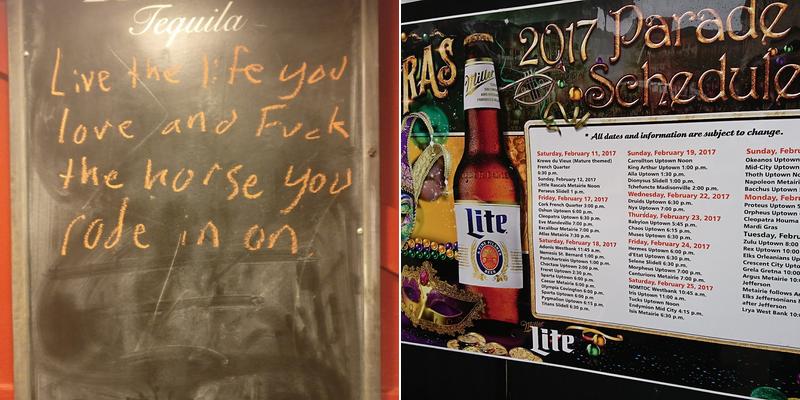 Tequila
Live the life you
love and Fuck
the horse you
rode in on
RAS
2017 Parade
Schedule
* All dates and information are subject to change.
Saturday, February 11, 2017
Krewe du Vieux (Mature themed)
French Quarter
6:30 p.m.
Sunday, February 12, 2017
Little Rascals Metairie Noon
Perseus Slidell 1 p.m.
Friday, February 17, 2017
Cork French Quarter 3:00 p.m.
Oshun Uptown 6:00 p.m.
Cleopatra Uptown 6:30 p.m.
Eve Mandeville 7:00 p.m.
Excalibur Metairie 7:00 p.m.
Atlas Metairie 7:30 p.m.
Saturday, February 18, 2017
Adonis Westbank 11:45 a.m.
Nemesis St. Bernard 1:00 p.m.
Pontchartrain Uptown 1:00 p.m.
Choctaw Uptown 2:00 p.m.
Freret Uptown 3:30 p.m.
Sparta Uptown 6:00 p.m.
Caesar Metairie 6:00 p.m.
Olympia Covington 6:00 p.m.
Sparta Uptown 6:00 p.m.
Pygmalion Uptown 6:15 p.m.
Titans Slidell 6:30 p.m.
Sunday, February 19, 2017
Carrollton Uptown Noon
King Arthur Uptown 1:00 p.m.
Alla Uptown 1:30 p.m.
Dionysus Slidell 1:00 p.m.
Tchefuncte Madisonville 2:00 p.m.
Wednesday, February 22, 2017
Druids Uptown 6:30 p.m.
Nyx Uptown 7:00 p.m.
Thursday, February 23, 2017
Babylon Uptown 5:45 p.m.
Chaos Uptown 6:15 p.m.
Muses Uptown 6:30 p.m.
Friday, February 24, 2017
Hermes Uptown 6:00 p.m.
d'Etat Uptown 6:30 p.m.
Selene Slidell 6:30 p.m.
Morpheus Uptown 7:00 p.m.
Centurions Metairie 7:00 p.m.
Saturday, February 25, 2017
NOMTOC Westbank 10:45 a.m.
Iris Uptown 11:00 a.m.
Tucks Uptown Noon
Endymion Mid City 4:15 p.m.
Isis Metairie 6:30 p.m.
Sunday, Febru
Okeanos Uptown
Mid-City Uptown
Thoth Uptown No
Napoleon Metairi
Bacchus Uptown
Monday, Febru
Proteus Uptown 5
Orpheus Uptown
Cleopatra Houma
Mardi Gras
Tuesday, Febru
Zulu Uptown 8:00
Rex Uptown 10:00
Elks Orleanians Up
Crescent City Upto
Grela Gretna 10:00
Argus Metairie 10:
Jefferson
Metairie follows A
Elks Jeffersonians M
after Jefferson
Lrya West Bank 10:
Miller
Lite
Lite